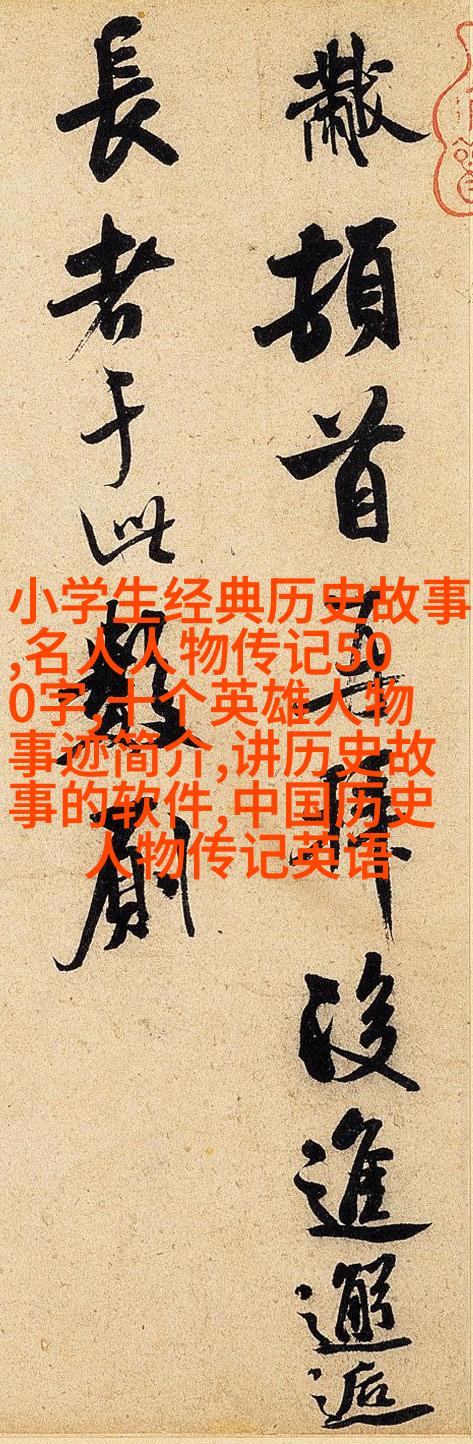 黻頓首再拜後進邂逅
長者于此數厠
小学生经典历史故事
,名人人物传记50
0字,十个英雄人物
事迹简介,讲历史故
事的软件,中国历史
人物传记英语